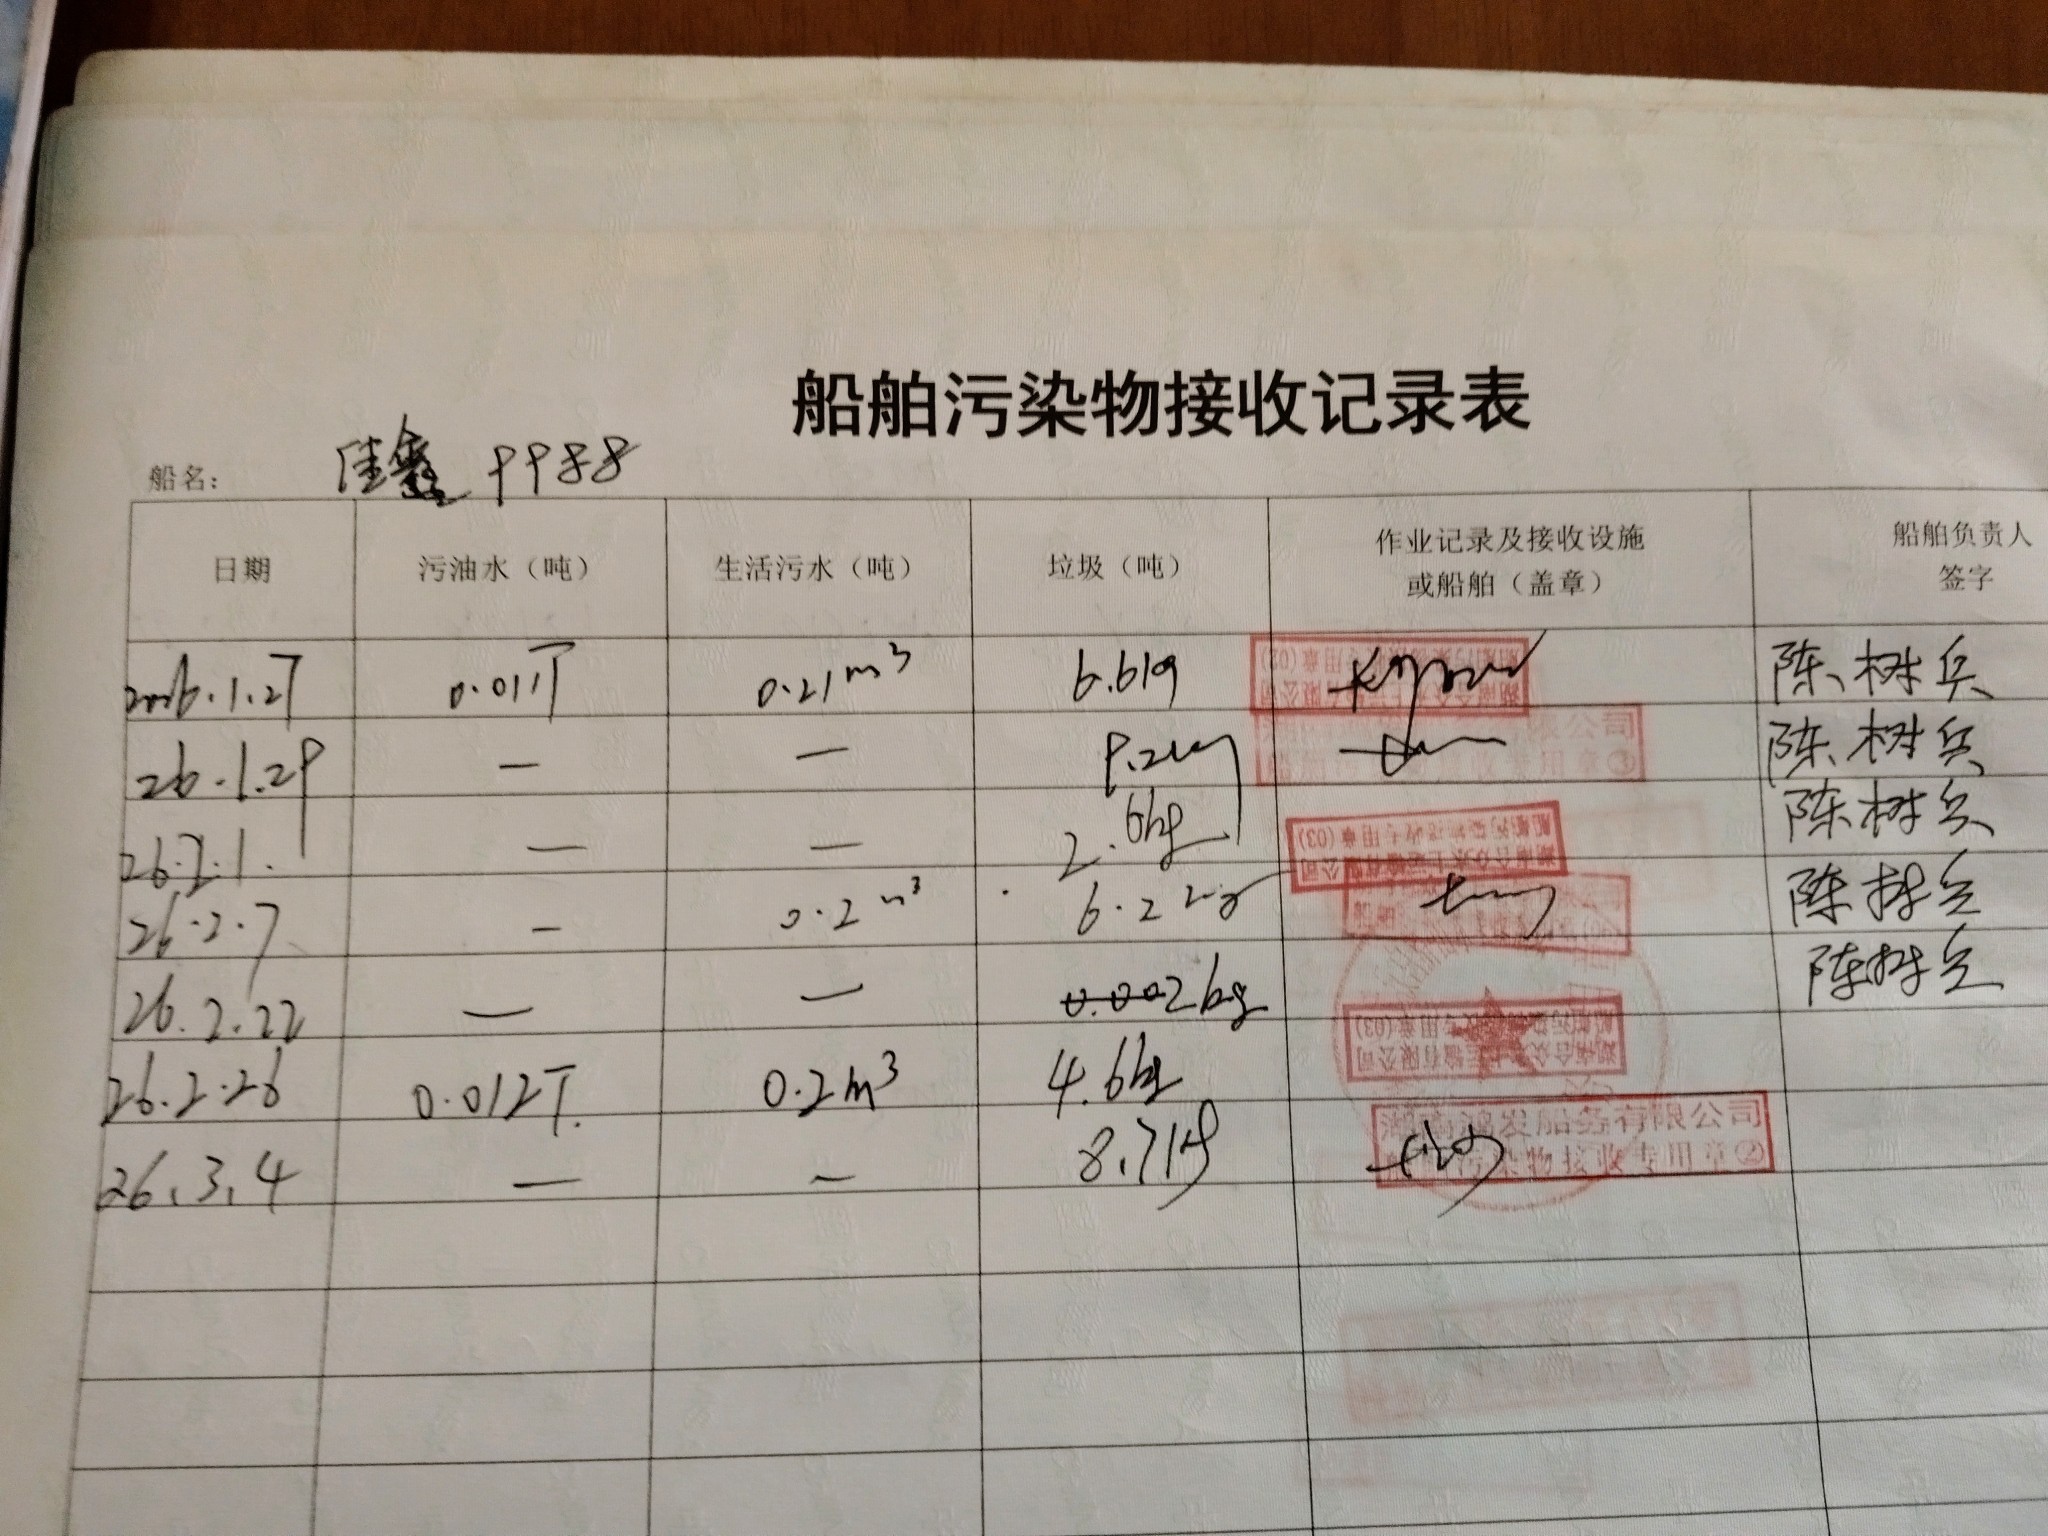 船舶污染物接收记录表
船名： 佳鑫 9988
日期 污油水（吨） 生活污水（吨） 垃圾（吨） 作业记录及接收设施或船舶（盖章） 船舶负责人签字
2026.1.27 0.011T 0.21m³ 6.61kg 陈树兵
26.1.29 — — 9.2kg 陈树兵
26.2.1. — — 2.6kg 陈树兵
26.2.7 — 0.2m³ 6.2kg 陈树兵
26.2.22 — — 2.6kg 陈树兵
26.2.26 0.012T. 0.2m³ 4.6kg
26.3.4 — — 8.71kg
湖南合众水上运输有限公司
船舶污染物接收专用章(03)
湖南鸿发船务有限公司
船舶污染物接收专用章②